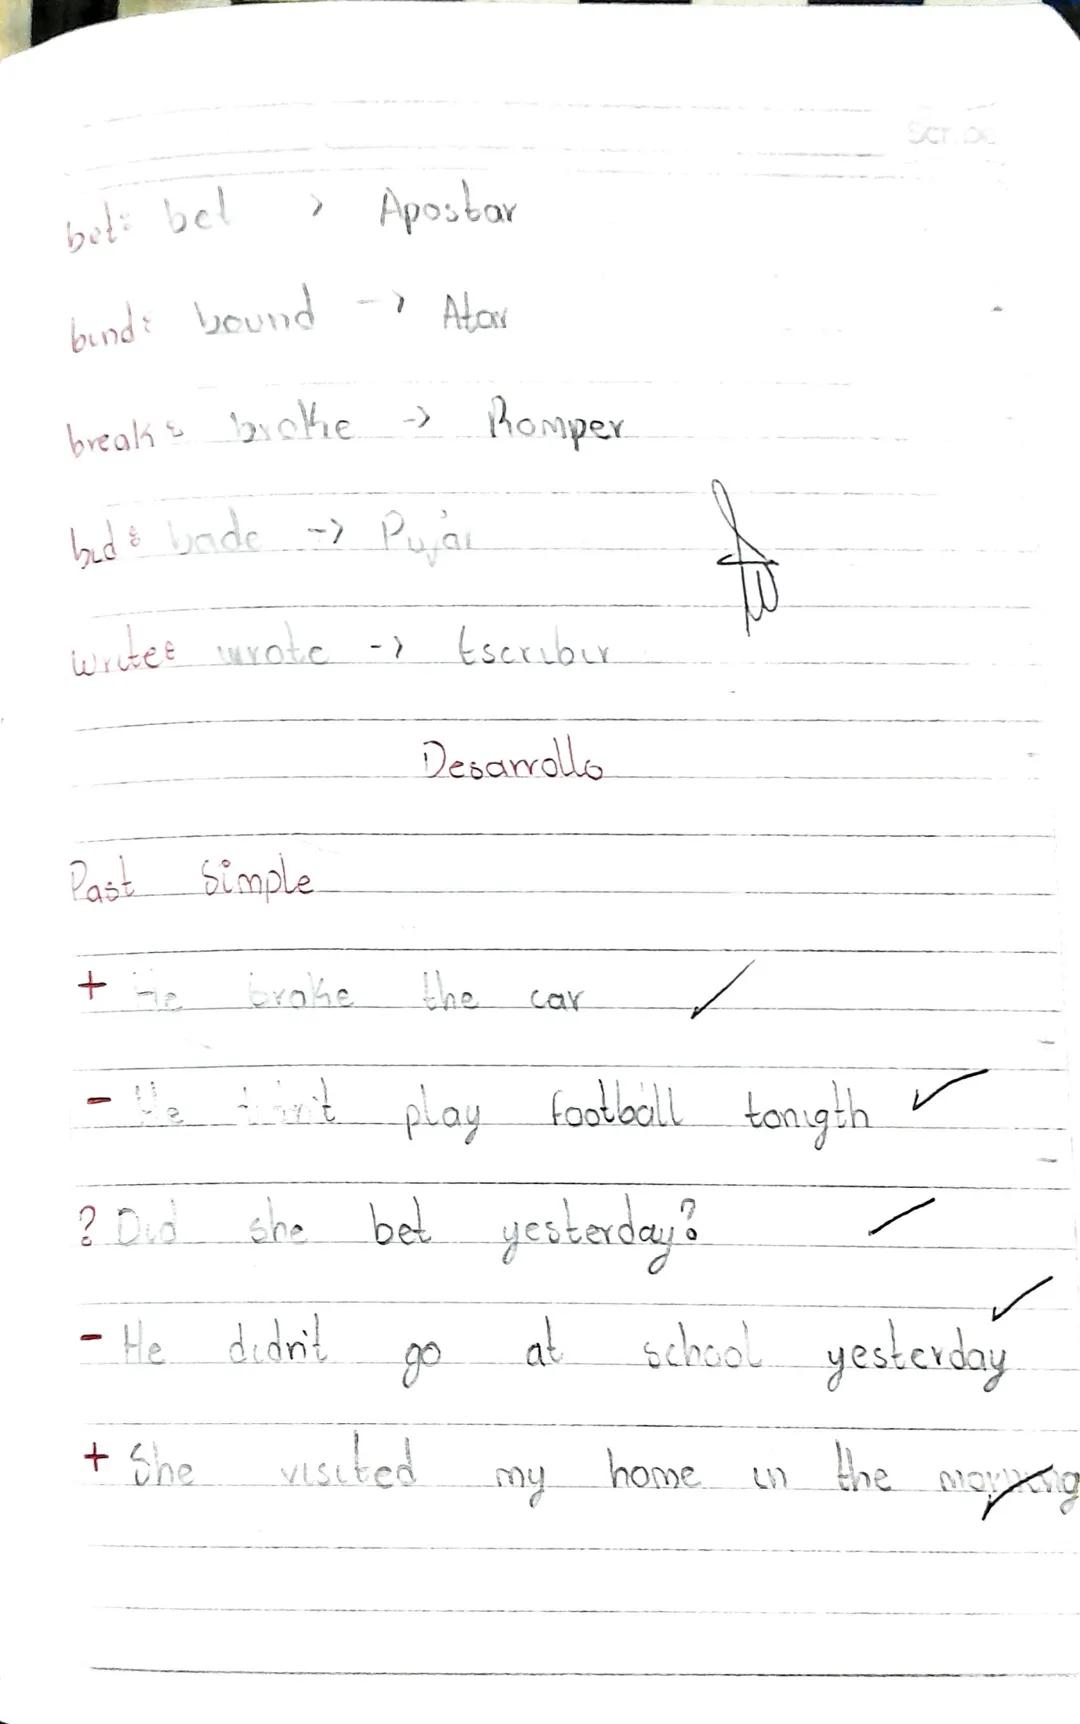 bet: bet > Apostar
bind: bound -> Atar
break: broke -> Romper
bid: bade -> Pujar
write: wrote -> Escribir
Desarrollo
Past Simple
+ He broke the car
- He play football tonigth
? Did she bet yesterday?
- He didn't go at school yesterday
+ She visited my home in the morning